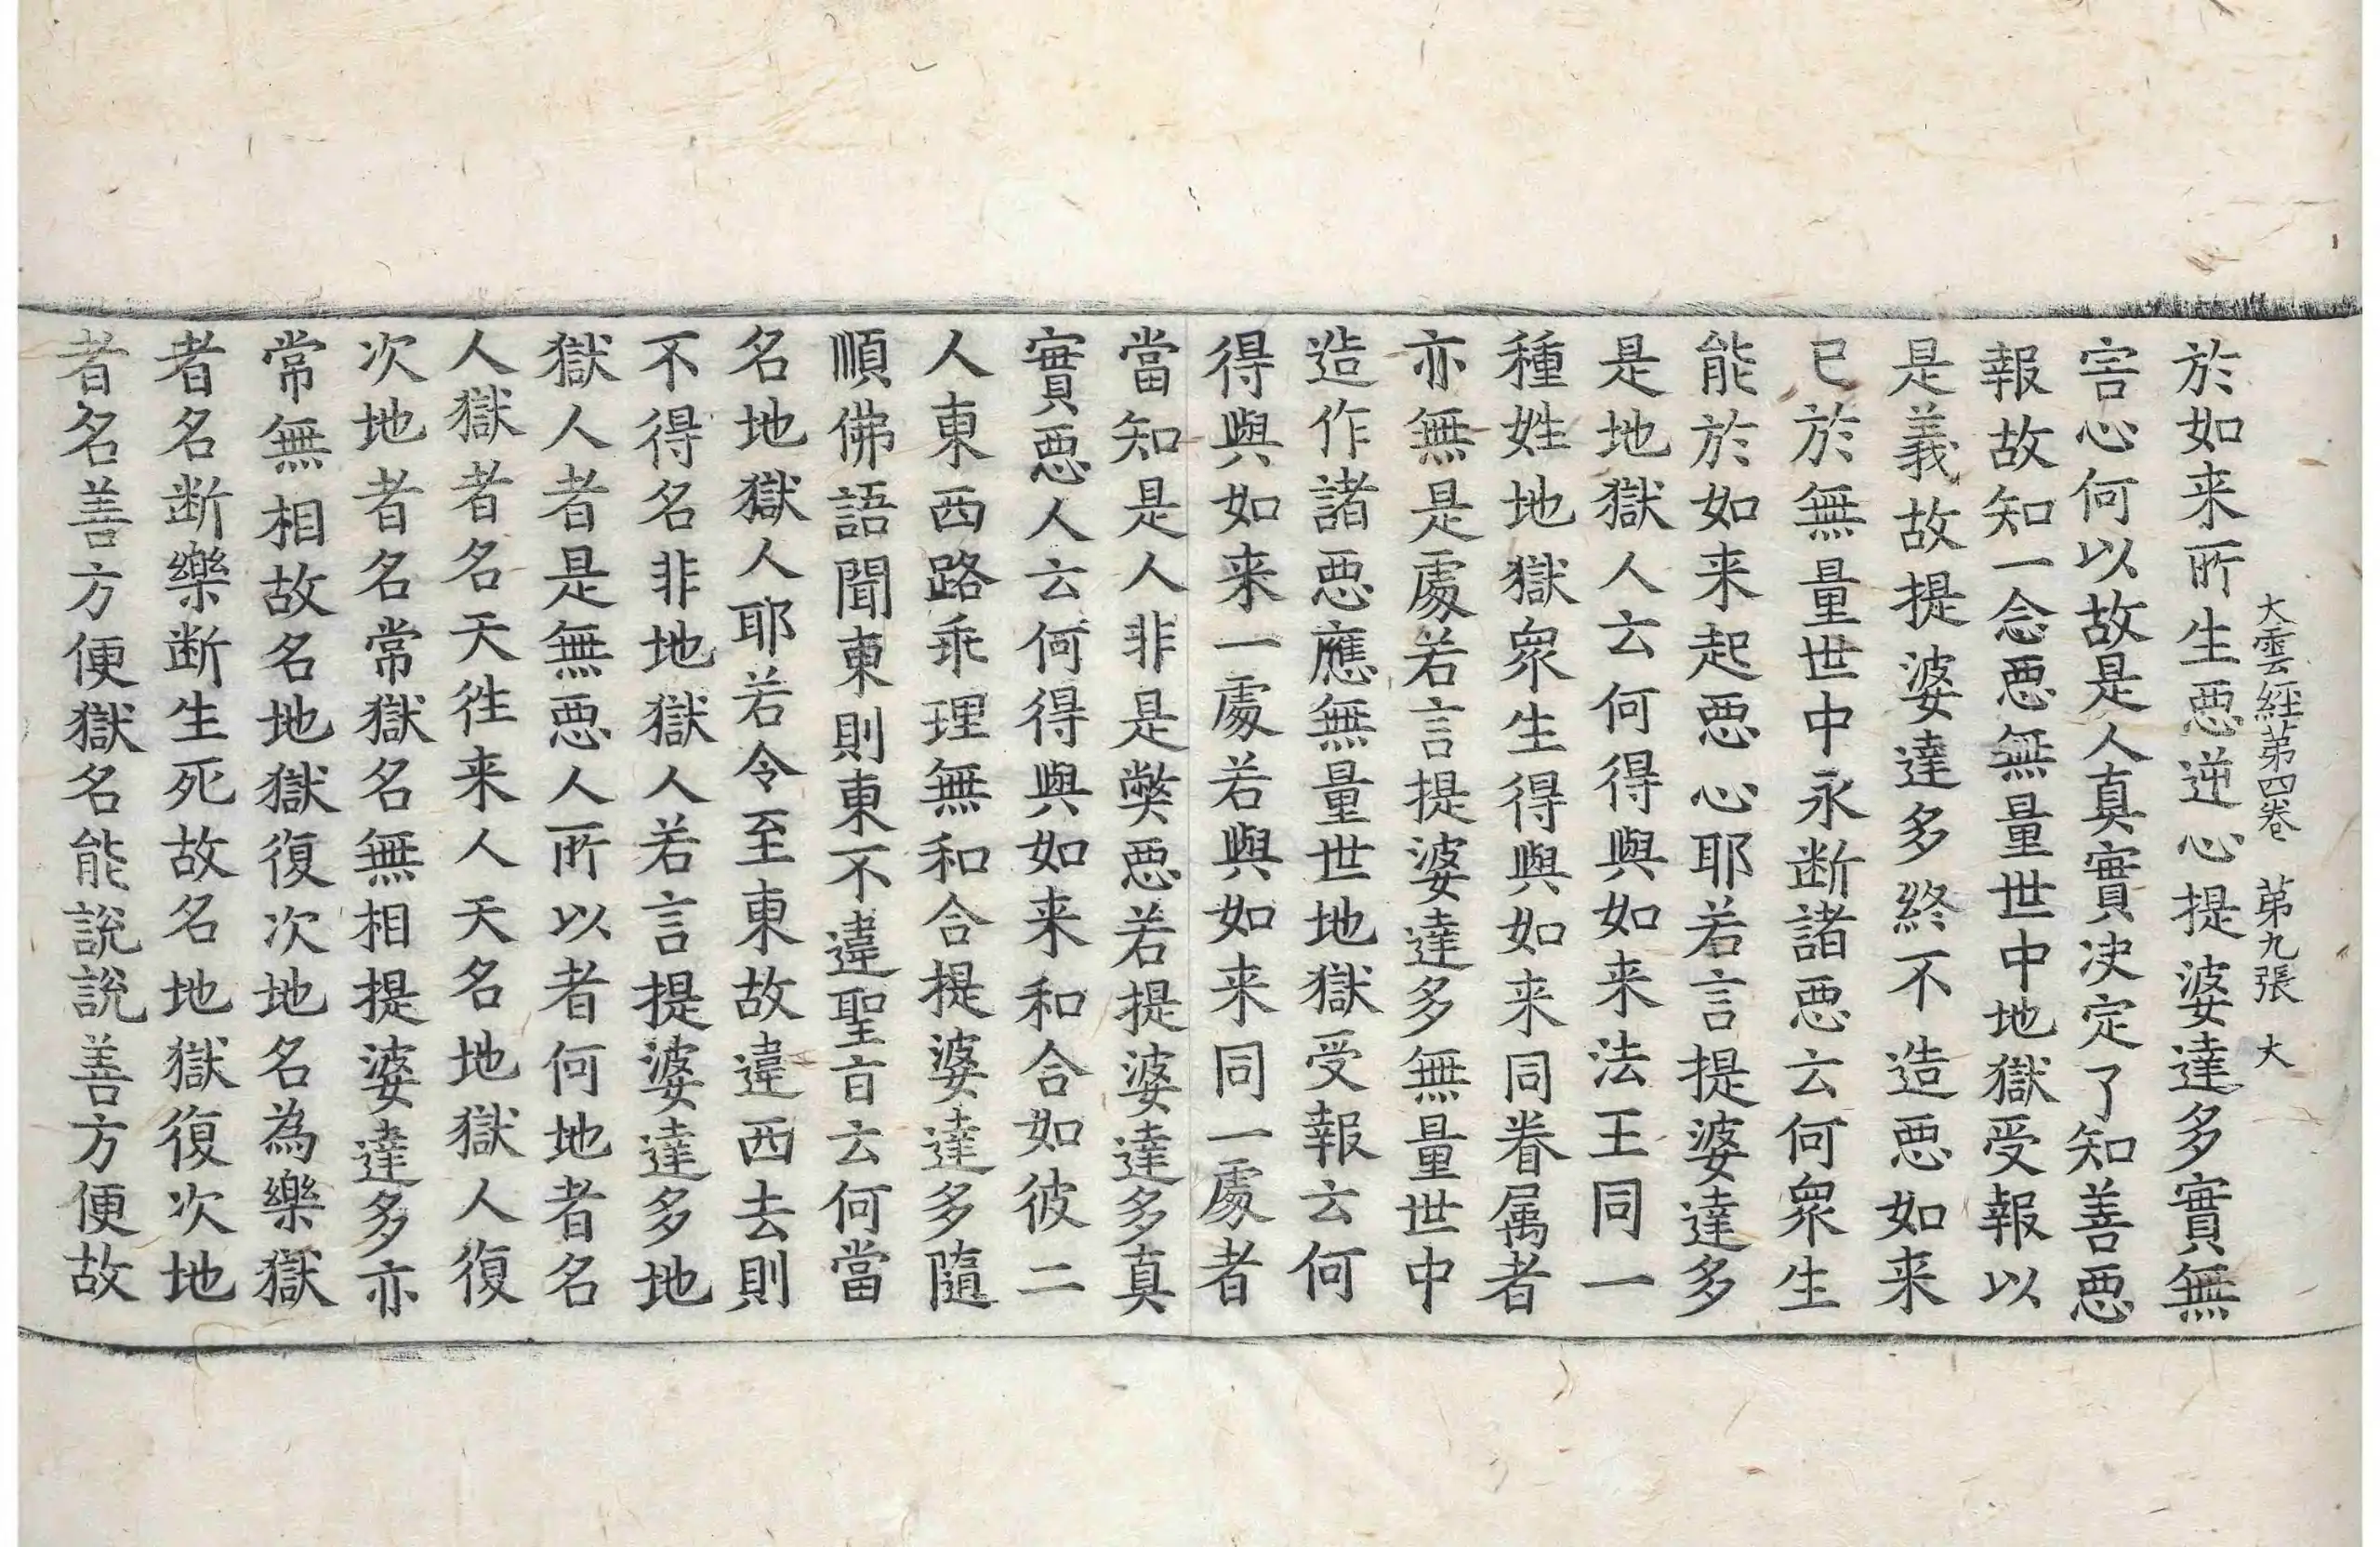 大雲經第四卷 第九張 大
於如来所生惡逆心提婆達多實無
害心何以故是人真實决定了知善惡
報故知一念惡無量世中地獄受報以
是義故提婆達多終不造惡如来
已於無量世中永断諸惡云何眾生
能於如来起惡心耶若言提婆達多
是地獄人云何得與如来法王同一
種姓地獄眾生得與如来同眷属者
亦無是處若言提婆達多無量世中
造作諸惡應無量世地獄受報云何
得與如来一處若與如来同一處者
當知是人非是弊惡若提婆達多真
實惡人云何得與如来和合如彼二
人東西路乖理無和合提婆達多隨
順佛語聞東則東不違聖旨云何當
名地獄人耶若令至東故違西去則
不得名非地獄人若言提婆達多地
獄人者是無惡人所以者何地者名
人獄者名天徃来人天名地獄人復
次地者名常獄名無相提婆達多亦
常無相故名地獄復次地名為樂獄
者名断樂断生死故名地獄復次地
者名善方便獄名能說說善方便故